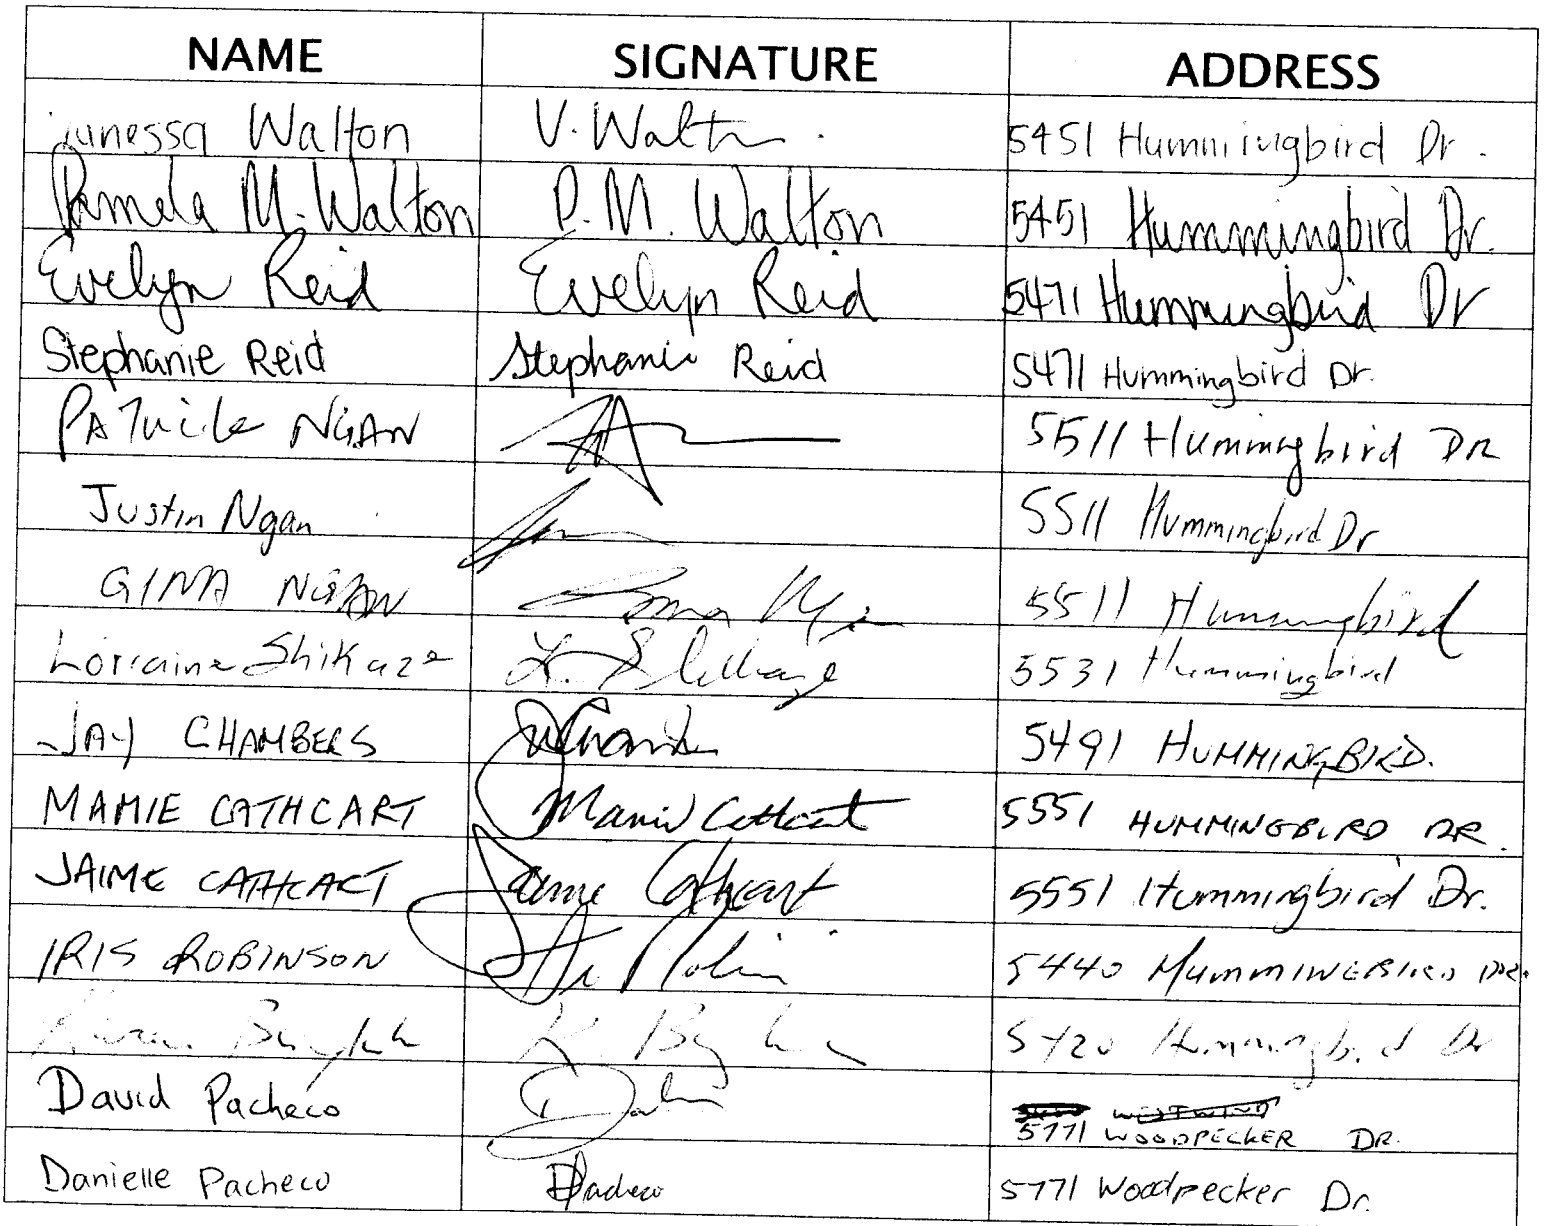 NAME SIGNATURE ADDRESS
Vanessa Walton V. Walton 5451 Hummingbird Dr.
Pamela M. Walton P. M. Walton 5451 Hummingbird Dr.
Evelyn Reid Evelyn Reid 5471 Hummingbird Dr
Stephanie Reid Stephanie Reid 5471 Hummingbird Dr.
PATRICK NGAN 5511 Hummingbird DR
Justin Ngan 5511 Hummingbird Dr
GINA NGAN 5511 Hummingbird
Lorraine Shikaze L. Shikaze 5531 Hummingbird
JAY CHAMBERS 5491 HUMMINGBIRD.
MAMIE CATHCART Mamie Cathcart 5551 HUMMINGBIRD DR.
JAIME CATHCART Jaime Cathcart 5551 Hummingbird Dr.
IRIS ROBINSON 5440 HUMMINGBIRD DR.
K. 5420 Hummingbird Dr
David Pacheco WESTWIND
5771 WOODPECKER DR.
Danielle Pacheco DPacheco 5771 Woodpecker Dr.